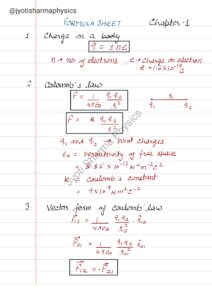 @jyotisharmaphysics
FORMULA SHEET Chapter-1
1. Charge on a body
q = ±ne
n → no of electrons, e → Charge on electron
e = 1.6×10⁻¹⁹C
2 Coulomb's law
F = 1/4πε₀ q₁q₂/r²
r
q₁ q₂
F = k q₁q₂/r²
q₁ and q₂ → Point Charges
ε₀ = permittivity of free space
= 8.85 × 10⁻¹² N⁻¹m⁻²C²
k = coulomb's constant
= 9×10⁹ Nm²C⁻²
3. Vector form of coulomb law
F⃗₁₂ = 1/4πε₀ q₁q₂/r² r̂₁₂
F⃗₂₁ = 1/4πε₀ q₁q₂/r² r̂₂₁
F⃗₁₂ = -F⃗₂₁
@jyotisharma physics